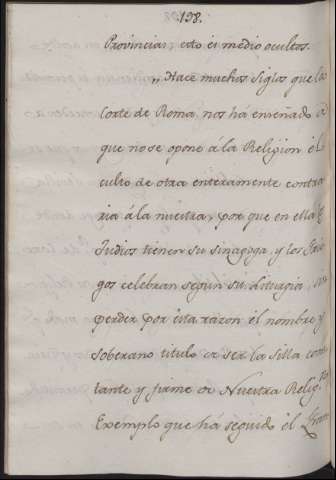 198.
Provincias, esto es medio ocultos.
„Hace muchos siglos que la
Corte de Roma nos há enseñado à
que no se opone á la Religion el
culto de otra enteramente contra
ria á la nuestra, por que en ella los
Judios tienen su sinagoga, y los Grie
gos celebran segun su Liturgia, sin
perder por esta razon el nombre y
soberano titulo de ser la Silla cons
tante y firme de Nuestra Relig.on
Exemplo que há seguido el